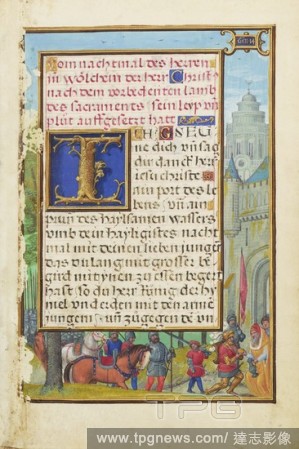 Vom nachtmal des herren
in wölchem der herr Christus
nach dem vorbedeuten lamb
des sacraments sein leyp vñ
plůt auffgesetzt hatt
ICH GNEG
ne dich vñ sag
dir danck herr
iesu christe
ain port des le
bens vñ ain
prun des haylsamen wassers
vmb dein hayligistes nacht
mal mit deinen lieben junger
das du lang mit grosser be
gird mit ynen zu essen begert
hast so du herr könig der hy
mel vnd erden mit den arme
jungern vñ zůgegen de vn
TPG
www.tpgnews.com/ 達志影像